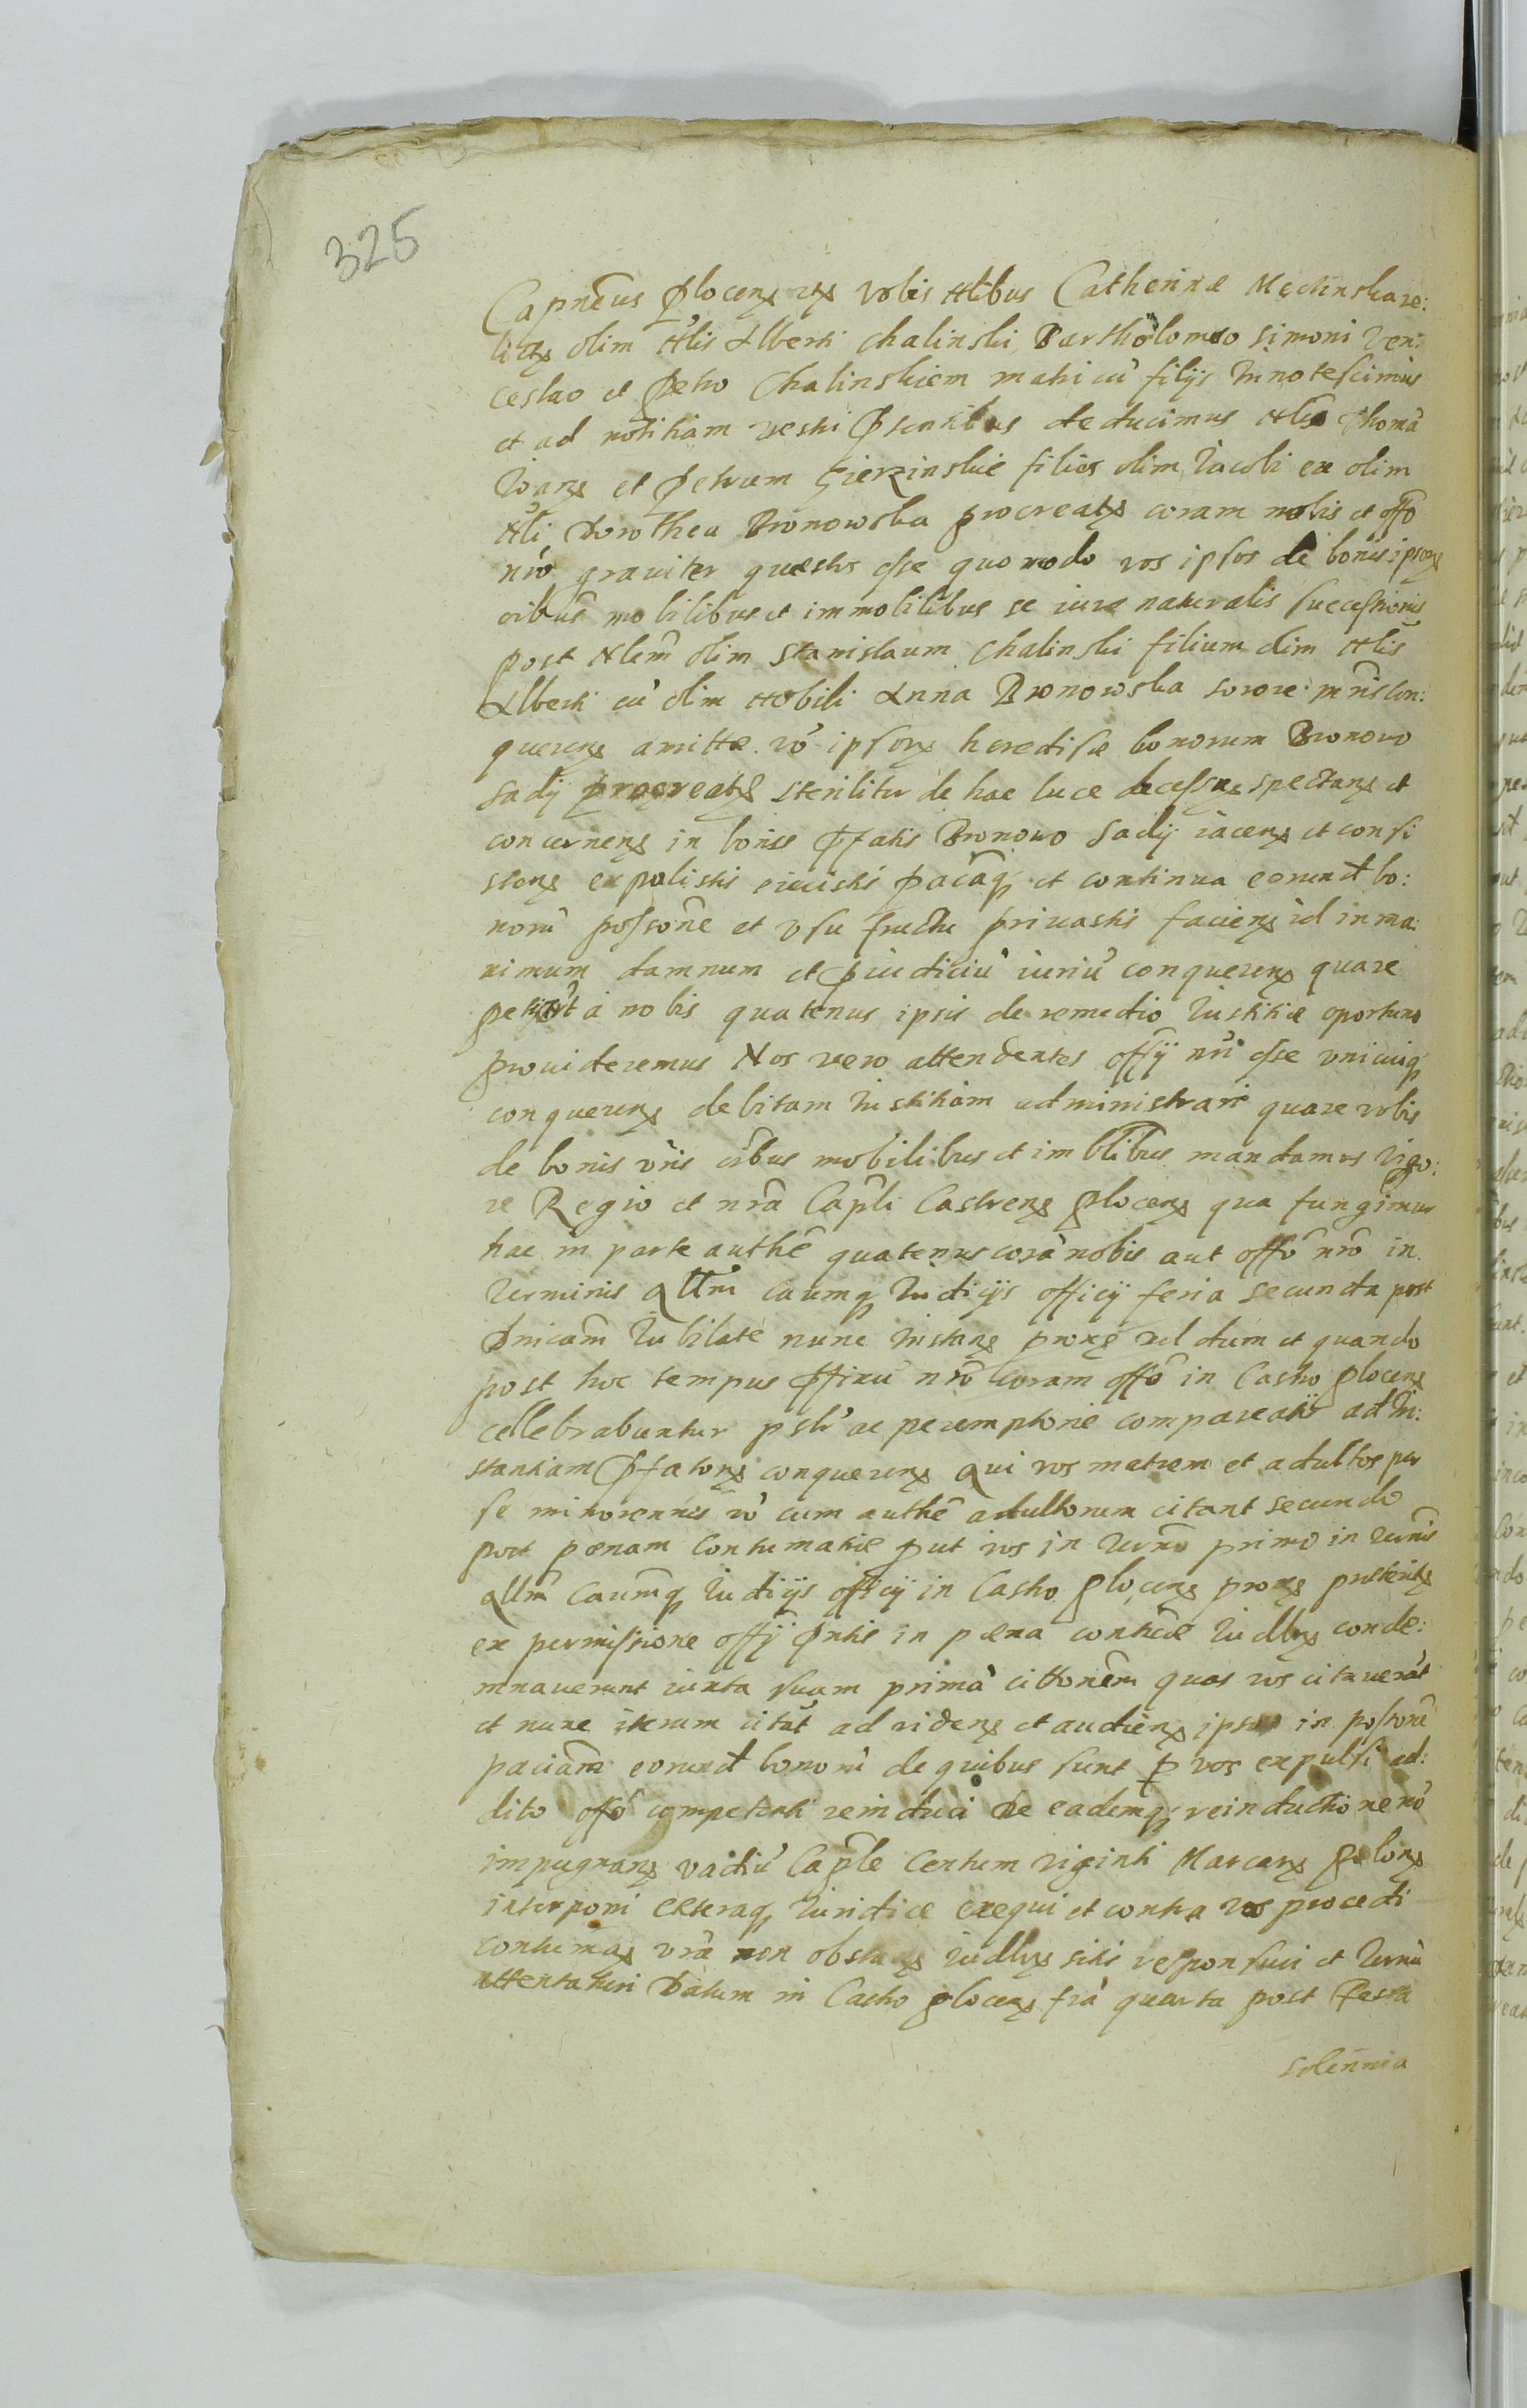 325
Capneus Plocens etc Vobis Nlibus Catherinæ Męcinska re:
lictæ olim Nlis Alberti Chalinski Bartholomeo Simoni Ven:
ceslao et Petro Chalinskiem matri cu filijs Innotescimus
et ad notitiam vestri Psentibus deducimus Nles Thoma
Joans et Petrum Gierzinskie filios olim Jacobi ex olim
Nli Dorothea Bronowska procreats coram nobis et offo
nro graviter questos esse quomodo vos ipsos de bonis ipsorum
oibus mobilibus et immobilibus se iure naturalis successionis
post Nlem olim Stanislaum Chalinski filium olim Nlis
Alberti cu olim Nobili Anna Bronowska sorore mris con:
querens amittæ vo ipsors heredisæ bonorum Bronowo
Sadÿ procreats steriliter de hac luce decessus spectans et
concernens in bonis pfatis Bronowo Sadÿ iacens et consi
stens expulistis eiecistis pacaq et continua eorund bo:
noru possone et usu fructu privastis faciens id in ma
ximum damnum et piudiciu iuriu conquerens quare
petiert a nobis quatenus ipsis de remedio Justitiæ oportuno
provideremus Nos vero attendentes offÿ nri esse unicuiq
conquerens debitam Justitiam administrari quare vobis
de bonis vris oibus mobilibus et imblibus mandamus vigo:
re Regio et nra Capli Castrens Plocens qua fungimur
hac in parte authe quatenus cora nobis aut offo nro in
Terminis qllm caumq Judicijs officÿ feria secunda post
Dnicam Jubilate nunc instans prox vel dum et quando
post hoc tempus pfixu nro coram offo in Castro Plocens
cellebrabuntur pslr ac peremptorie compareatis ad In:
stantiam pfators conquerens Qui vos matrem et adultos per
se minorennes vo cum authe adultorum citant secundo
post pænam Contumatiæ put vos in Terno primo in Ternis
qllm Caumq Judiijs officÿ in Castro Plocens prox preterits
ex permissione offÿ pntis in pæna conticæ Judllrs conde:
mnaverunt iuxta suam prima cittonem quas vos citaverat
et nunc iterum citat ad videns et audiens ipsos in possone
paciam eorund bonoru de quibus sunt p vos expulsi ad:
dito offo competenti reinduci De eademq reinductione no
impugnans vadiu Caple Centum viginti Marcars Polons
interponi cæteraq Juridice exequi et contra vos procedi
contumas vra non obstans Judllrs sitis responsuri et Ternu
attentaturi Datum in Castro Plocens fra quarta post Festa
Solennia